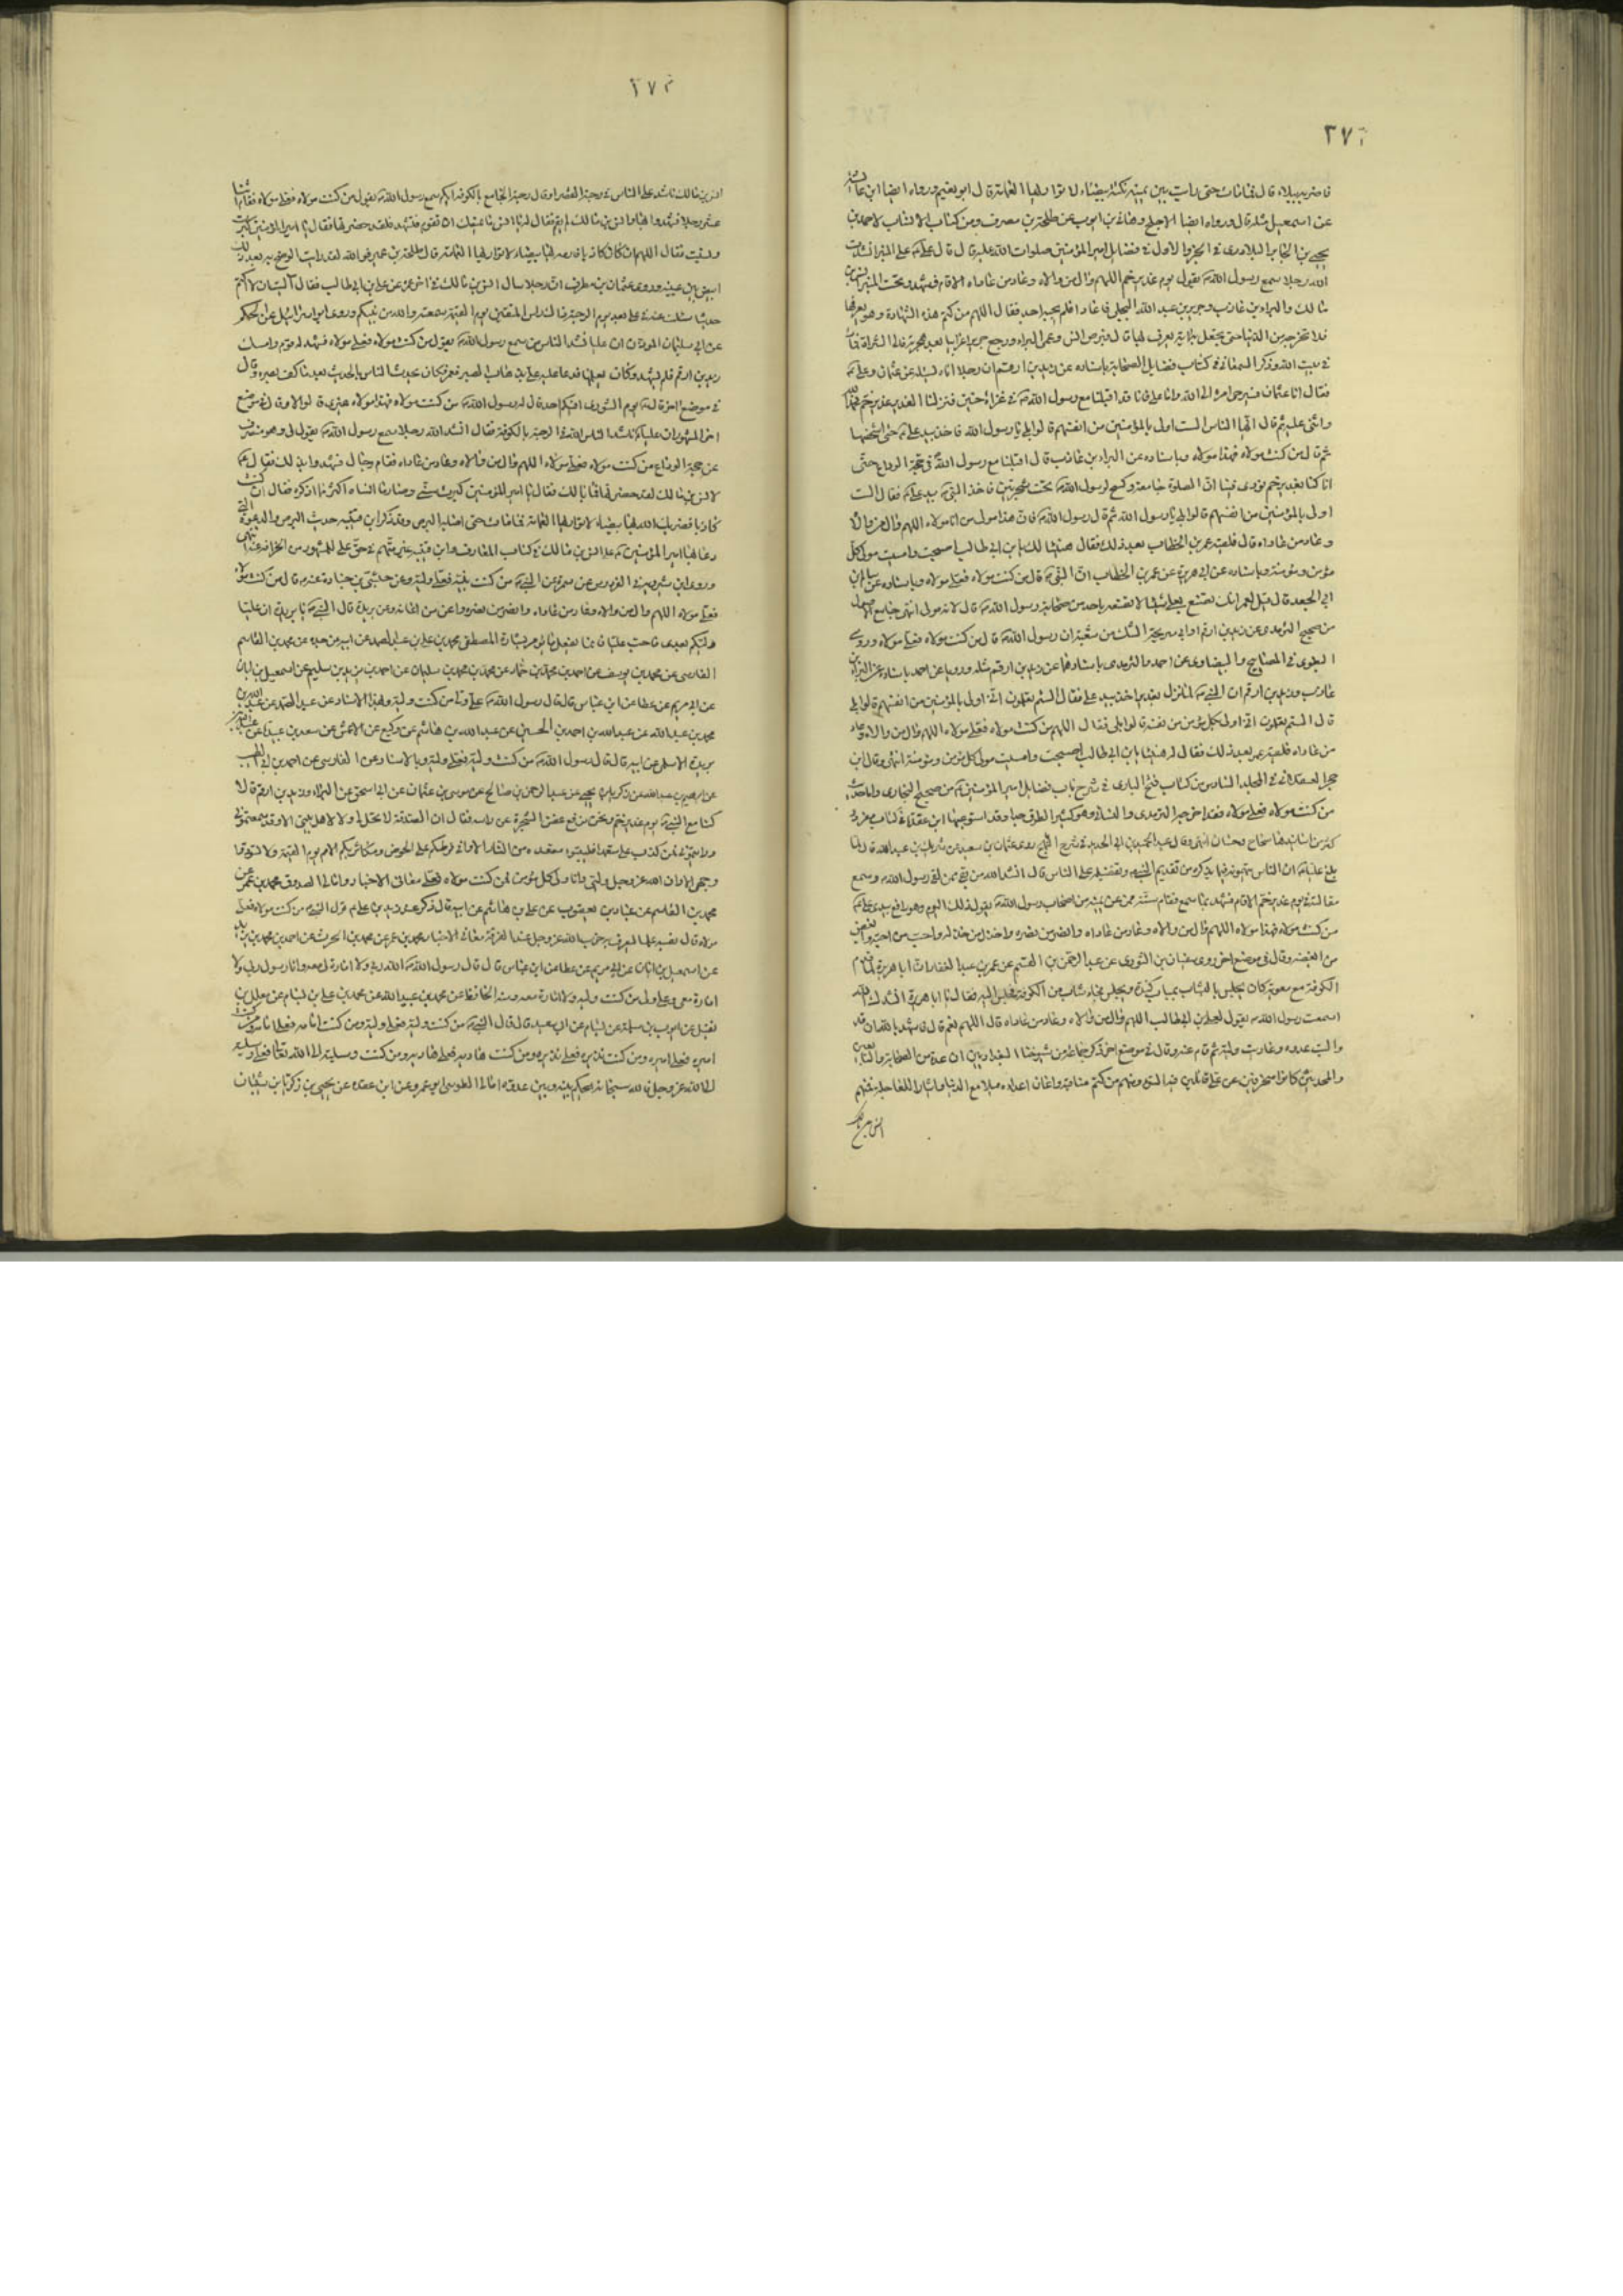 ٢٧٢
فاضربه ببلاء قال فما مات حتى رأيت بين عينيه نكتة بيضاء لا تواريها العمامة قال ابو نعيم ورواه ايضا ابن عائشة
عن اسمعيل مثله قال ورواه ايضا الاجلح وهانى بن ايوب عن طلحة بن مصرف ومن كتاب الانساب لاحمد بن
يحيى بن جابر البلاذرى فى الجزو الاول فى فضايل امير المؤمنين صلوات الله عليه قال قال على على المنبر انشدت
الله رجلا سمع رسول الله يقول يوم غدير خم اللهم وال من والاه وعاد من عاداه الا قام فشهد وتحت المنبر انس بن
مالك والبراء بن عازب وجرير بن عبد الله البجلى فاعادها فلم يجبه احد فقال اللهم من كتم هذه الشهادة وهو يعرفها
فلا تخرجه من الدنيا حتى تجعل به اية يعرف بها قال فبرص انس وعمى البراء ورجع جرير اعرابيا بعد هجرته فاتى الشراة فمات
فى بيت امه وذكر السمعانى فى كتاب فضايل الصحابة باسناده عن زيد بن ارقم ان رجلا اتاه يسئله عن عثمان وعلى
فقال اما عثمان فيرجى امره الى الله واما على فانا قد اقبلنا مع رسول الله فى غزاة حنين فنزلنا الغدير غدير خم فحمد الله
واثنى عليه ثم قال ايها الناس الست اولى بالمؤمنين من انفسهم قالوا بلى يا رسول الله فاخذ بيد على حتى اشخصها
ثم قال من كنت مولاه فهذا مولاه وباسناده عن البراء بن عازب قال اقبلنا مع رسول الله فى حجة الوداع حتى
اذا كنا بغدير خم نودى فينا ان الصلوة جامعة وكسح لرسول الله تحت شجرتين فاخذ النبى بيد على فقال الست
اولى بالمؤمنين من انفسهم قالوا بلى يا رسول الله ثم قال رسول الله فان هذا مولى من انا مولاه اللهم وال من والاه
وعاد من عاداه قال فلقيه عمر بن الخطاب بعد ذلك فقال هنيئا لك يا بن ابى طالب اصبحت وامسيت مولى كل
مؤمن ومؤمنة وباسناده عن ابى هريرة عن عمر بن الخطاب ان النبى قال من كنت مولاه فعلى مولاه وباسناده عن سالم بن
ابى الجعد قال قيل لعمر انك تصنع بعلى شيئا لا تصنعه باحد من صحابة رسول الله قال لانه مولاى انتهى جامع الاصول
من صحيح الترمذى عن زيد بن ارقم او ابى سريحة الشك من شعبة ان رسول الله قال من كنت مولاه فعلى مولاه وروى
البغوى فى المصابيح والبيضاوى عن احمد والترمذى باسنادهما عن زيد بن ارقم مثله ورويا عن احمد باسناده عن البراء بن
عازب وزيد بن ارقم ان النبى لما نزل بغدير اخذ بيد على فقال الستم تعلمون انى اولى بالمؤمنين من انفسهم قالوا بلى
قال الستم تعلمون انى اولى بكل مؤمن من نفسه قالوا بلى فقال اللهم من كنت مولاه فعلى مولاه اللهم وال من والاه وعاد
من عاداه فلقيه عمر بعد ذلك فقال له هنيئا يا بن ابى طالب اصبحت وامسيت مولى كل مؤمن ومؤمنة انتهى وقال ابن
حجر العسقلانى فى المجلد السادس من كتاب فتح البارى فى شرح باب فضايل امير المؤمنين من صحيح البخارى واما حديث
من كنت مولاه فعلى مولاه فقد اخرجه الترمذى والنسائى وهو كثير الطرق جدا وقد استوعبها ابن عقدة فى كتاب مفرد
كثير من اسانيدها صحاح وحسان انتهى وقال عبد الحميد بن ابى الحديد فى شرح النهج روى عثمان بن سعيد عن شريك بن عبد الله قال لما
بلغ عليا ان الناس يتهمونه فيما يذكره من تقديم النبى وتفضيله على الناس قال انشد الله من بقى ممن لقى رسول الله وسمع
مقالته يوم غدير خم الا قام فشهد بما سمع فقام ستة ممن عن يمينه من اصحاب رسول الله يقول ذلك اليوم وهو رافع بيدى على
من كنت مولاه فهذا مولاه اللهم وال من والاه وعاد من عاداه وانصر من نصره واخذل من خذله واحب من احبه وابغض
من ابغضه وقال فى موضع اخر روى سفيان بن الثورى عن عبد الرحمن بن القسم عن عمر بن عبد الغفار ان ابا هريرة لما قدم
الكوفة مع معوية كان يجلس بالعشيات بباب كندة ويجلس الناس اليه فجاء شاب من الكوفة فجلس اليه فقال يا ابا هريرة انشدك الله
اسمعت رسول الله يقول لعلى بن ابى طالب اللهم وال من والاه وعاد من عاداه قال اللهم نعم قال فاشهد بالله ان قد
واليت عدوه وعاديت وليه ثم قام عنه وقال فى موضع اخر ذكر جماعة من شيوخنا البغداديين ان عدة من الصحابة والتابعين
والمحدثين كانوا منحرفين عن على قائلين فيه السوء ومنهم من كتم مناقبه واعان اعدائه ميلا مع الدنيا وايثارا للعاجلة فمنهم
انس بن مالك
٢٧٣
انس بن مالك ناشد على الناس فى رحبة القصر او قال رحبة الجامع بالكوفة ايكم سمع رسول الله يقول من كنت مولاه فعلى مولاه فقام اثنا
عشر رجلا فشهدوا بها وانس بن مالك لم يقم فقال له يا انس ما يمنعك ان تقوم فتشهد فلقد حضرتها فقال يا امير المؤمنين كبرت
ونسيت فقال اللهم ان كان كاذبا فارمه بها بيضاء لا تواريها العمامة قال طلحة بن عمير فو الله لقد رايت الوضح به بعد ذلك
ابيض بين عينيه وروى عثمان بن مطرف ان رجلا سال انس بن مالك فى اخر عمره عن على بن ابى طالب فقال آليت ان لا اكتم
حديثا سئلت عنه فى على بعد يوم الرحبة ذاك راس المتقين يوم القيمة سمعته والله من نبيكم وروى ابو اسرائيل عن الحكم
عن ابى سليمان المؤذن ان عليا نشد الناس من سمع رسول الله يقول من كنت مولاه فعلى مولاه فشهد له قوم وامسك
زيد بن ارقم فلم يشهد وكان يعلمها فدعا عليه على بذهاب البصر فعمى فكان يحدث الناس بالحديث بعد ما كف بصره وقال
فى موضع اخر قال يوم الشورى افيكم احد قال له رسول الله من كنت مولاه فهذا مولاه غيرى قالوا لا وقال فى موضع
اخر المشهور ان عليا ناشد الناس الله فى الرحبة بالكوفة فقال انشد الله رجلا سمع رسول الله يقول لى وهو منصرف
عن حجة الوداع من كنت مولاه فعلى مولاه اللهم وال من والاه وعاد من عاداه فقام رجال فشهدوا بذلك فقال
لانس بن مالك لقد حضرتها فما بالك فقال يا امير المؤمنين كبرت سنى وصار ما انساه اكثر مما اذكره فقال ان كنت
كاذبا فضربك الله بها بيضاء لا تواريها العمامة فما مات حتى اصابه البرص وقد ذكر ابن قتيبة حديث البرص والدعوة التى
دعا بها امير المؤمنين على انس بن مالك فى كتاب المعارف وابن قتيبة غير متهم فى حق على للمشهور من انحرافه عنه انتهى
وروى ابن شيرويه فى الفردوس عن سمرة عن النبى من كنت نبيه فعلى وليه وعن حبشى بن جنادة عنه قال من كنت مولاه
فعلى مولاه اللهم وال من والاه وعاد من عاداه وانصر من نصره واعن من اعانه وعن بريدة قال النبى يا بريدة ان عليا
وليكم بعدى فاحب عليا فانما يفعل ما يؤمر بشارة المصطفى محمد بن على بن عبد الصمد عن ابيه عن جده عن محمد بن القاسم
الفارسى عن محمد بن يوسف عن احمد بن محمد بن حماد عن محمد بن محمد بن سليمان عن احمد بن يزيد بن سليم عن اسمعيل بن ابان
عن ابى مريم عن عطا عن ابن عباس قال قال رسول الله على ولى من كنت وليه وبهذا الاسناد عن عبد الصمد عن عبد الله بن
محمد بن عبد الله عن عبد الله بن احمد بن الحسين عن عبد الله بن هاشم عن وكيع عن الاعمش عن سعد بن عبيدة عن عبد الله بن
بريدة الاسلمى عن ابيه قال قال رسول الله من كنت وليه فعلى وليه وبالاسناد عن الفارسى عن احمد بن ابى الطيب
عن ابرهيم بن عبد الله عن زكريا بن يحيى عن عبد الرحمن بن صالح عن موسى بن عثمان عن ابى اسحق عن البراء وزيد بن ارقم قالا
كنا مع النبى يوم غدير خم ونحن نرفع غصن الشجرة عن راسه فقال ان الصدقة لا تحل لى ولا لاهل بيتى الا وقد سمعتمونى
ورايتمونى فمن كذب على متعمدا فليتبوأ مقعده من النار الا وانى فرطكم على الحوض ومكاثر بكم الامم يوم القيمة ولا تسودوا
وجهى الا وان الله عز وجل وليى وانا ولى كل مؤمن فمن كنت مولاه فعلى مولاه معانى الاخبار وامالى الصدوق محمد بن عمر عن
محمد بن القاسم عن عباد بن يعقوب عن على بن هاشم عن ابيه قال ذكر عند زيد بن على قول النبى من كنت مولاه فعلى
مولاه قال نصبه علما ليعرف به حزب الله عز وجل عند الفرقة معانى الاخبار محمد بن عمر عن محمد بن الحرث عن احمد بن محمد بن يزيد
عن اسمعيل بن ابان عن ابى مريم عن عطا عن ابن عباس قال قال رسول الله الله ربى ولا امارة لى معه وانا رسول ربى ولا
امارة معى وعلى ولى من كنت وليه ولا امارة معه ومنه الحافظ عن محمد بن عبيد الله عن محمد بن على بن بسام عن معلل بن
نفيل عن ايوب بن سلمة عن بسام عن ابى سعيد قال قال النبى من كنت وليه فعلى وليه ومن كنت امامه فعلى امامه ومن كنت
اميره فعلى اميره ومن كنت نذيره فعلى نذيره ومن كنت هاديه فعلى هاديه ومن كنت وسيلته الى الله تعالى فعلى وسيلته
الى الله عز وجل فالله سبحانه يحكم بينه وبين عدوه امالى الطوسى ابو عمرو عن ابن عقدة عن يحيى بن زكريا بن شيبان